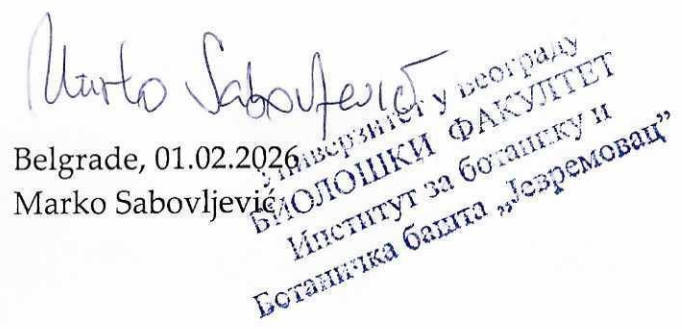 Marko Sabovljević
Belgrade, 01.02.2026
Marko Sabovljević
Универзитет у Београду
БИОЛОШКИ ФАКУЛТЕТ
Институт за ботанику и
Ботаничка башта „Јевремовац”